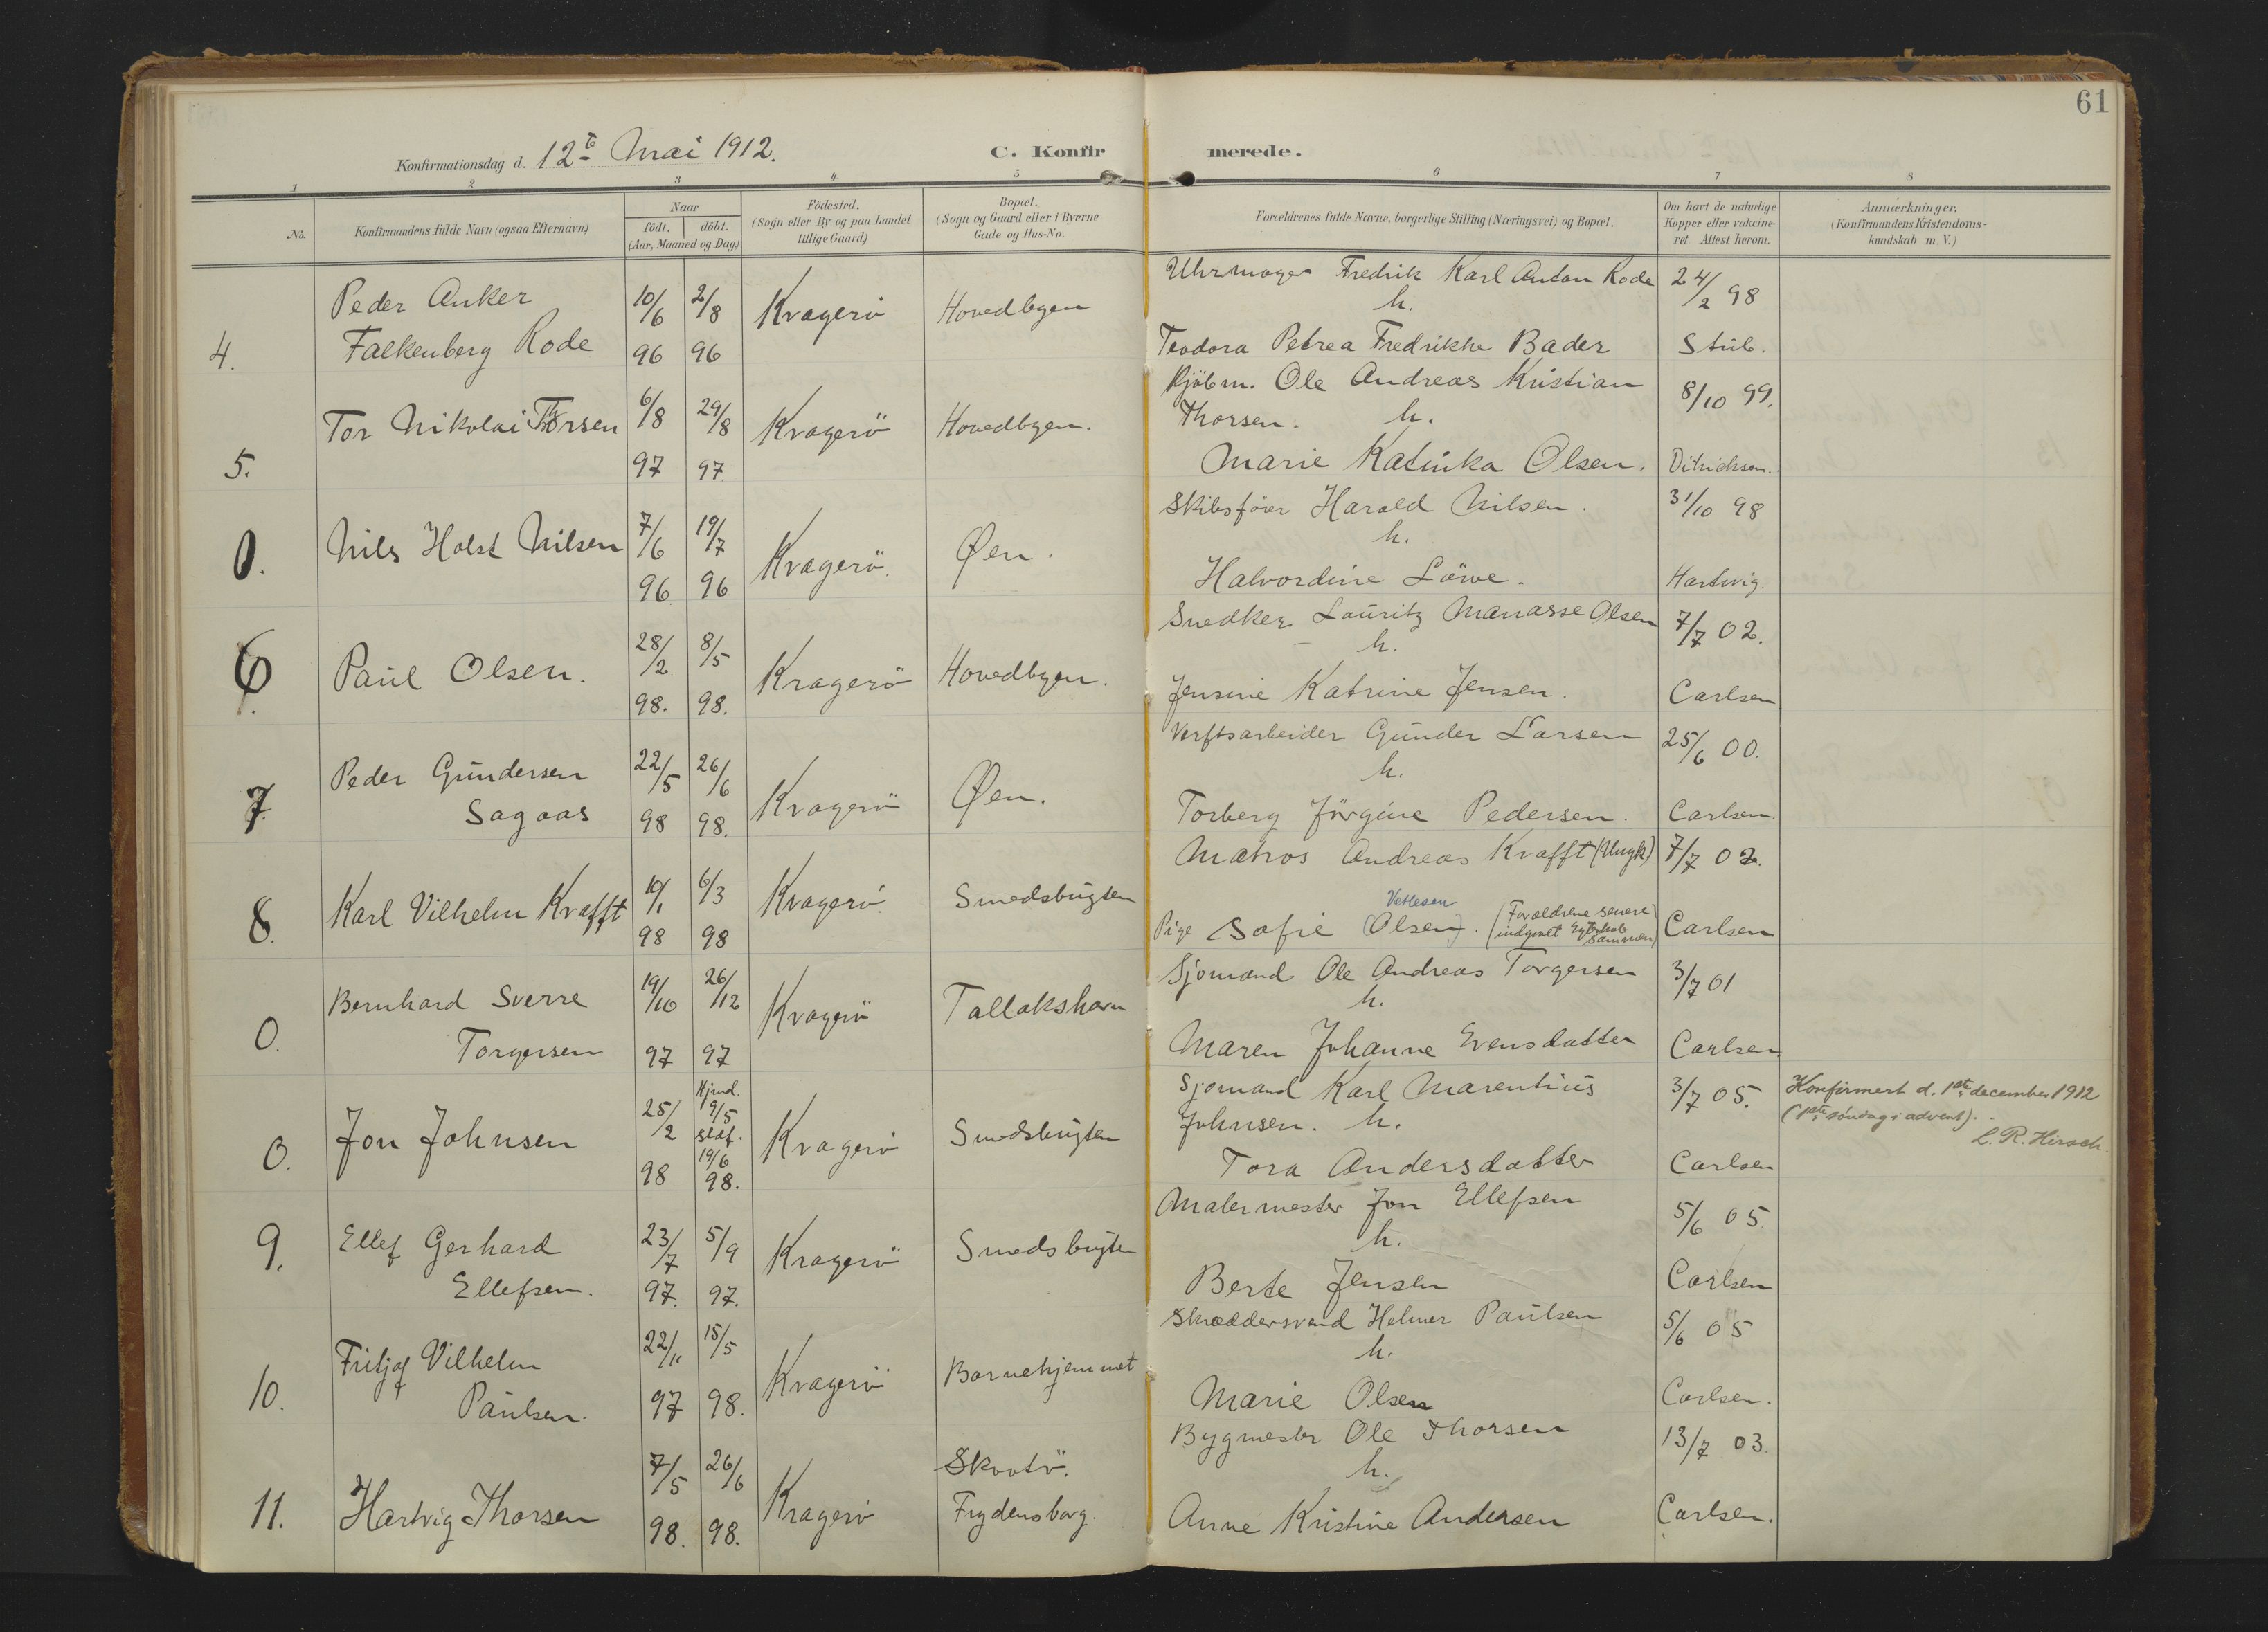 61
Konfirmationsdag d. 12te Mai 1912.
C. Konfirmerede.
1 2 3 4 5 6 7 8
No.
Konfirmandens fulde Navn (ogsaa Efternavn)
Naar
födt. döbt.
(Aar, Maaned og Dag)
Födested.
(Sogn eller By og paa Landet
tillige Gaard)
Bopæl.
(Sogn og Gaard eller i Byerne
Gade og Hus-No.
Forældrenes fulde Navne, borgerlige Stilling (Næringsvei) og Bopæl.
Om havt de naturlige
Kopper eller vakcine-
ret Attest herom.
Anmærkninger.
(Konfirmandens Kristendoms-
kundskab m. V.)
4. Peder Anker
Falkenberg Rode
10/6 96 2/8 96
Kragerö
Hovedbyen
Uhrmager Fredrik Karl Anton Rode
h.
Teodora Petrea Fredrikke Bader
24/2 98
Stub.
5. Tor Nikolai Thorsen
6/8 97 29/8 97
Kragerö
Hovedbyen.
Kjöbm. Ole Andreas Kristian
Thorsen. h.
Marie Katinka Olsen.
8/10 99.
Ditrichson.
0. Nils Holst Nilsen
7/6 96 19/7 96
Kragerö.
Øen.
Skibsförer Harald Nilsen.
h.
Halvordine Löwe.
31/10 98
Hartwig.
6. Paul Olsen.
28/2 98. 8/5 98.
Kragerö
Hovedbyen.
Snedker Lauritz Manasse Olsen
h.
Jensine Katrine Jensen.
7/7 02.
Carlsen
7. Peder Gundersen
Sagaas
22/5 98 26/6 98.
Kragerö
Øen.
Verftsarbeider Gunder Larsen
h.
Torberg Jörgine Pedersen.
25/6 00.
Carlsen.
8. Karl Vilhelm Krafft
10/1 98 6/3 98
Kragerö
Smedsbugten
Matros Andreas Krafft (Ungk)
Vetlesen
Pige Sofie (Olsen). (Forældrene senere
indgaaet Egteskab
sammen)
7/7 02.
Carlsen
0. Bernhard Sverre
Torgersen
19/10 97 26/12 97
Kragerö
Tallakshavn
Sjomand Ole Andreas Torgersen
h.
Maren Johanne Evensdatter
3/7 01
Carlsen
0. Jon Johnsen
25/2 98
Hjmd.
19/5
stdf.
19/6
98.
Kragerö
Smedsbugten
Sjomand Karl Marentius
Johnsen. h.
Tora Andersdatter
3/7 05.
Carlsen
Konfirmert d. 1ste december 1912
(1ste söndag i advent).
L. R. Hirsch.
9. Ellef Gerhard
Ellefsen.
23/7 97. 5/9 97.
Kragerö
Smedsbugten
Malermester Jon Ellefsen
h.
Berte Jensen
5/6 05
Carlsen
10. Fritjof Vilhelm
Paulsen.
22/11 97 15/5 98.
Kragerö
Barnehjemmet
Skræddersvend Helmer Paulsen
h.
Marie Olsen
5/6 05
Carlsen.
11. Hartvig Thorsen
7/5 98. 26/6 98.
Kragerö
Skaatö.
Frydensborg.
Bygmester Ole Thorsen
h.
Anne Kristine Andersen
13/7 03.
Carlsen.